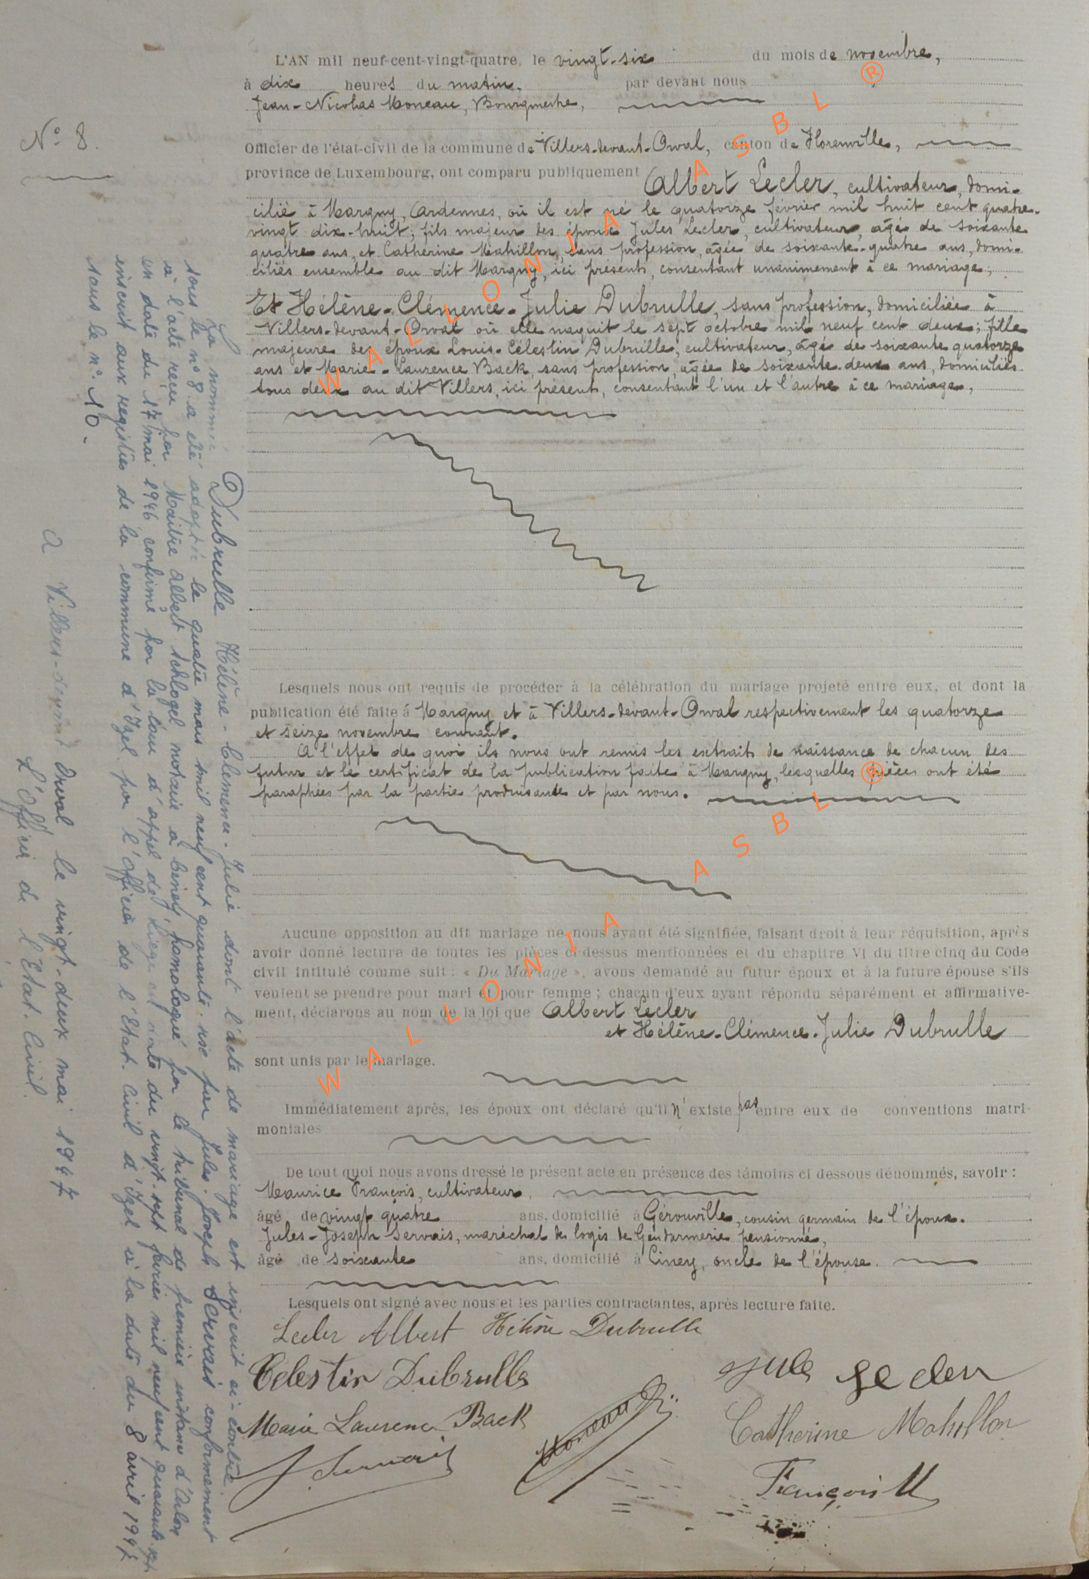 N° 8.
L'AN mil neuf-cent-vingt-quatre, le vingt-six du mois de novembre,
à dix heures du matin, par devant nous
Jean-Nicolas Moneau, Bourgmestre,
Officier de l'état-civil de la commune de Villers-devant-Orval, canton de Florenville,
province de Luxembourg, ont comparu publiquement Albert Lecler, cultivateur, domi-
cilié à Margny, Ardennes, où il est né le quatorze février mil huit cent quatre-
vingt dix-huit; fils majeur des époux Jules Lecler, cultivateur, âgé de soixante
quatre ans, et Catherine Mahillon, sans profession, âgée de soixante-quatre ans, domi-
ciliés ensemble au dit Margny, ici présents, consentant unanimement à ce mariage;
Et Hélène-Clémence-Julie Dubrulle, sans profession, domiciliée à
Villers-devant-Orval où elle naquit le sept octobre mil neuf cent deux; fille
majeure des époux Louis-Célestin Dubrulle, cultivateur, âgé de soixante quatorze
ans et Marie-Laurence Back sans profession, âgée de soixante-deux ans, domiciliés
tous deux au dit Villers, ici présent, consentant l'un et l'autre à ce mariage,
Lesquels nous ont requis de procéder à la célébration du mariage projeté entre eux, et dont la
publication été faite à Margny et à Villers-devant-Orval respectivement les quatorze
et seize novembre courant.
A l'effet de quoi ils nous ont remis les extraits de naissance de chacun des
futur et le certificat de la publication faite à Margny, lesquelles pièces ont été
paraphées par la partie produisante et par nous.
Aucune opposition au dit mariage ne nous ayant été signifiée, faisant droit à leur réquisition, après
avoir donné lecture de toutes les pièces ci dessus mentionnées et du chapitre VI du titre cinq du Code
civil intitulé comme suit : « Du Mariage », avons demandé au futur époux et à la future épouse s'ils
veulent se prendre pour mari et pour femme ; chacun d'eux ayant répondu séparément et affirmative-
ment, déclarons au nom de la loi que Albert Lecler
et Hélène-Clémence-Julie Dubrulle
sont unis par le mariage.
Immédiatement après, les époux ont déclaré qu'il n'existe pas entre eux de conventions matri-
moniales
De tout quoi nous avons dressé le présent acte en présence des témoins ci dessous dénommés, savoir :
Maurice François, cultivateur,
âgé de vingt quatre ans, domicilié à Gérouville, cousin germain de l'époux.
Jules-Joseph Servais, maréchal des logis de Gendarmerie pensionné,
âgé de soixante ans, domicilié à Ciney, oncle de l'épouse.
Lesquels ont signé avec nous et les parties contractantes, après lecture faite.
Lecler Albert Hélène Dubrulle
Célestin Dubrulle Jules Lecler
Marie Laurence Back Catherine Mahillon
J. Servais Moneau
François M
La nommée Dubrulle Hélène-Clémence-Julie dont l'acte de mariage est inscrit ci-contre
sous le n° 8 a été adoptée le quatre mars mil neuf cent quarante-six par Jules-Joseph Servais conformément
à l'acte reçu par Maître Albert Schlogel notaire à Ciney, homologué par le tribunal de première instance d'Arlon
en date du 17 mai 1946 confirmé par la Cour d'appel de Liège en date du vingt sept février mil neuf cent quarante sept
inscrit aux registres de la commune d'Izel par l'Officier de l'Etat-Civil d'Izel à la date du 8 avril 1947
sous le n° 10.
A Villers-devant-Orval le vingt-deux mai 1947
L'Officier de l'Etat-Civil.
WALLONIA ASBL ®
WALLONIA ASBL ®